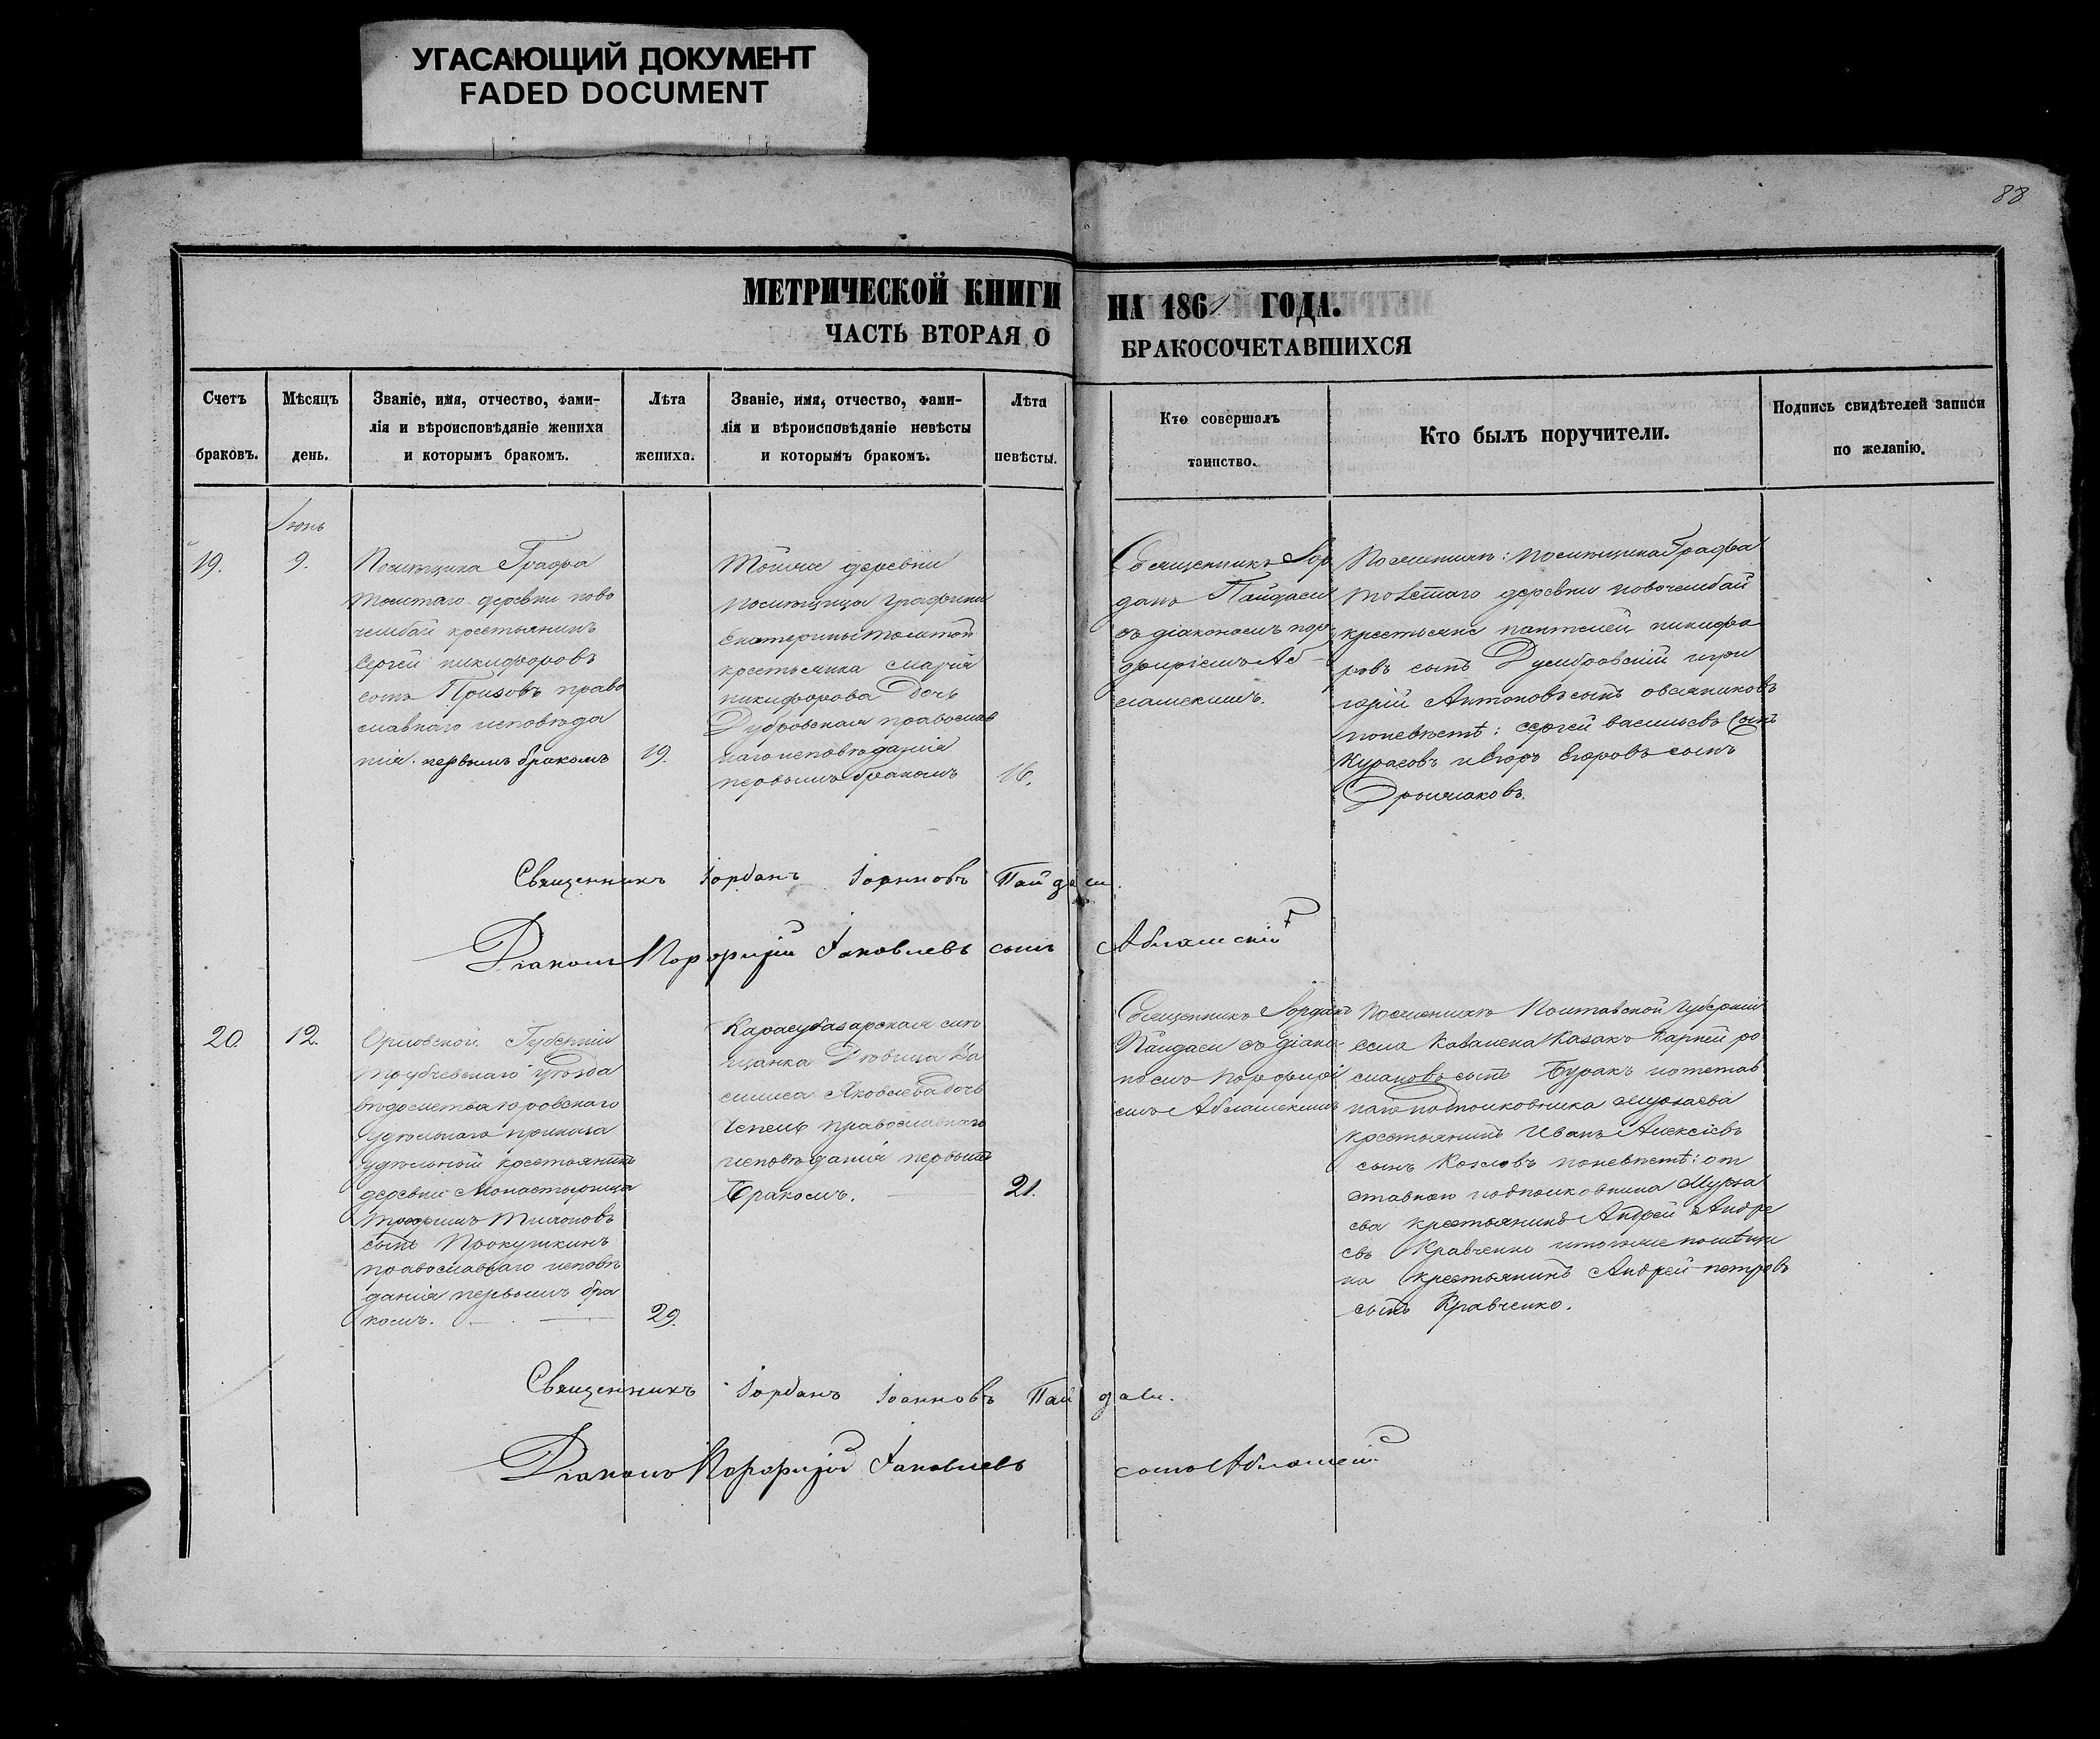 УГАСАЮЩИЙ ДОКУМЕНТ
FADED DOCUMENT
88
МЕТРИЧЕСКОЙ КНИГИ НА 1861 ГОДА.
ЧАСТЬ ВТОРАЯ О БРАКОСОЧЕТАВШИХСЯ
Счетъ
браковъ.
Мѣсяцъ
день.
Званіе, имя, отчество, фами-
лія и вѣроисповѣданіе жениха
и которымъ бракомъ.
Лѣта
жениха.
Званіе, имя, отчество, фами-
лія и вѣроисповѣданіе невѣсты
и которымъ бракомъ.
Лѣта
невѣсты.
Кто совершалъ
таинство.
Кто былъ поручители.
Подпись свидѣтелей записи
по желанію.
Іюнь
19.
9.
Помѣщика Графа
толстаго деревни ново
чембай крестьянинъ
Сергей никифоровъ
сынъ православ
славнаго исповѣда
нія. первымъ бракомъ
19.
Тойже деревни
помѣщицы Графини
Екатерины толстой
крестьянка марія
никифорова Дочь
Дубровская православ
наго исповѣданія
первымъ бракомъ
16.
Священникъ Іор
данъ Пайдаси
съ діакономъ пор
фиріемъ Аб
лашскимъ.
Пожениха: помѣщика Графа
толстаго деревни новочембай
крестьяне пантелей никифо
ровъ сынъ Дубровскій игри
горій Антоновъ сынъ овсянниковъ
поневѣстѣ: сергей васильевъ сынъ
Курасовъ иЕгоръ Егоровъ сынъ
Священникъ Іорданъ Іоанновъ Пайдаси.
Діаконъ Порфирій Іаковлевъ сынъ Аблашскій
20.
12.
Орловской Губерніи
трубчевскаго уѣзда
вѣдомства юровскаго
удѣльнаго приказа
удѣльный крестьянинъ
деревни Монастырища
трофимъ
сынъ Прокушкинъ
православнаго исповѣ
данія первымъ бра
комъ.
29.
Карасубазарская мѣ
щанка Дѣвица Ва
силиса Яковлева дочь
Чепель православнаго
исповѣданія первымъ
Бракомъ.
21.
Священникъ Іорданъ
Пайдаси съ діако
номъ порфирі
емъ Аблашскимъ
Поженихѣ Полтавской Губерніи
села Казакъ Карпей ро
мановъ сынъ Буракъ иотстав
наго подполковника Мурзаева
крестьянинъ Иванъ Алексѣевъ
сынъ Козловъ поневѣстѣ: от
ставнаго подполковника Мурза
ева крестьянинъ Андрей Андре
евъ Кравченко итогоже помѣщи
ка крестьянинъ Андрей петровъ
сынъ Кравченко.
Священникъ Іорданъ Іоанновъ Пайдаси.
Діаконъ Порфирій Іаковлевъ сынъ Аблашскій